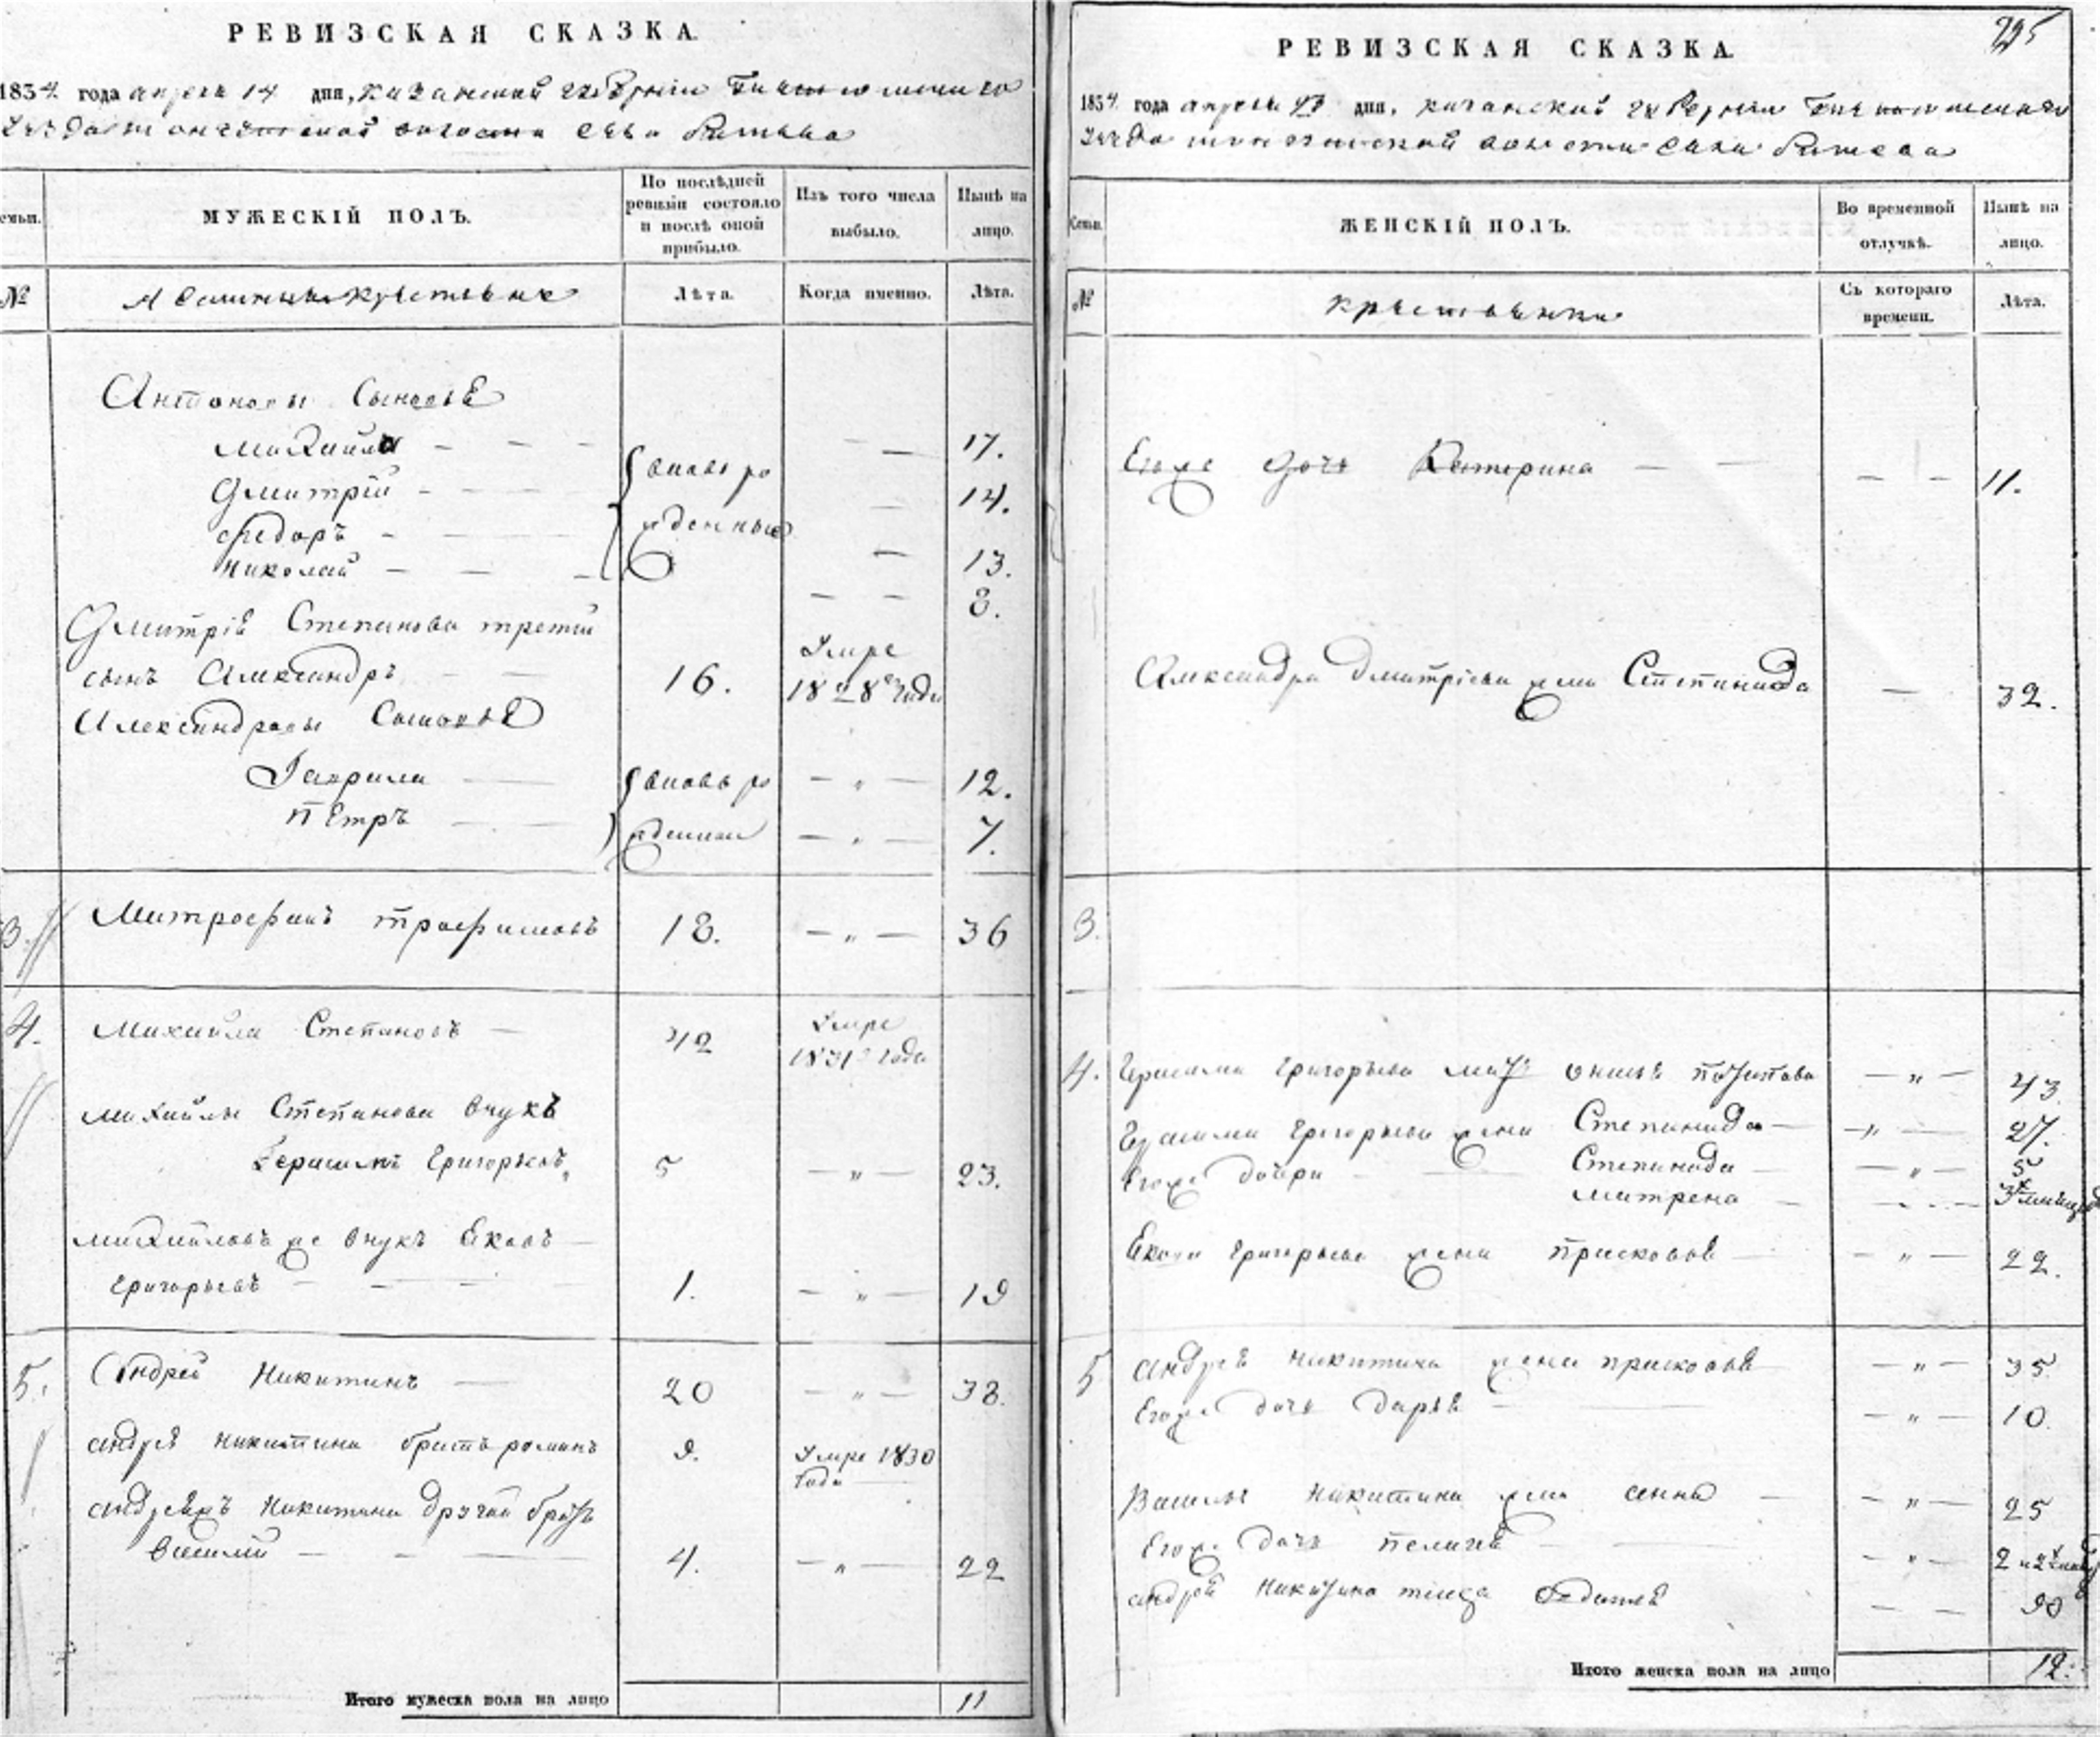 РЕВИЗСКАЯ СКАЗКА.
1834 года апреля 14 дня, казанской губернiи
волости села
семьи.
МУЖЕСКIЙ ПОЛЪ.
По послѣдней ревизiи состояло и послѣ оной прибыло.
Изъ того числа выбыло.
Нынѣ на лицо.
№
крестьяне
Лѣта.
Когда именно.
Лѣта.
Антоновы Сыновьѣ
Михайла — — — 17.
Дмитрiй - — 14.
Федоръ - — 13.
Николай — — — 8.
{ вновь ро
жденные
Дмитрiѣ Степанова третiй
сынъ Александръ — — 16. Умре 1828 года
Александровы Сыновьѣ
Гаврила — — „ — 12.
пѣтръ — — „ — 7.
{ вновь ро
жденыи
3. Митрофанъ трофимовъ 18. — „ — 36
4. Михайла Степановъ — 42 Умре 1831 года
михайлы Степанова внукъ
Герасимъ Григорьевъ 5 — „ — 23.
михайловъ же внукъ Ѣковъ —
григорьевъ — — — 1. — „ — 19
5. Андрей Никитинъ — 20 — „ — 38.
андрѣѣ никитина братъ романъ 9. Умре 1830 года
Никитина другой братъ
василiй — - — 4. — „ — 22
Итого мужеска пола на лицо 11
РЕВИЗСКАЯ СКАЗКА.
1834 года апреля дня, казанской губернiи
уезда волости села
Семьи.
ЖЕНСКIЙ ПОЛЪ.
Во временной отлучкѣ.
Нынѣ на лицо.
№
крестьянки
Съ котораго времени.
Лѣта.
Егоже дочь Катерина — — — — 11.
Александра Дмитрiева жена Степанида — 32.
3.
4. Герасима григорьева мать потапова — „ — 43
Герасима григорьева жена Степанида — — „ — 27.
Егоже дочери — Степанида — — „ — 5
матрена
Ѣкова григорьева жена прасковьѣ — „ — 22.
5 андрѣѣ никитина жена прасковьѣ — „ — 35
Егоже дочь дарьѣ — — „ — 10.
Василья никитина жена анна — — „ — 25
Егоже дочь пелагѣѣ — — „ —
андрѣй никитина теща — —
Итого женска пола на лицо 12.